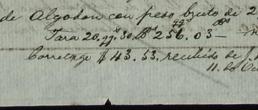 de Algodon con peso bruto de 2
Tara 20. 30. 256.03 —
Corretage $ 43.53, recibido de